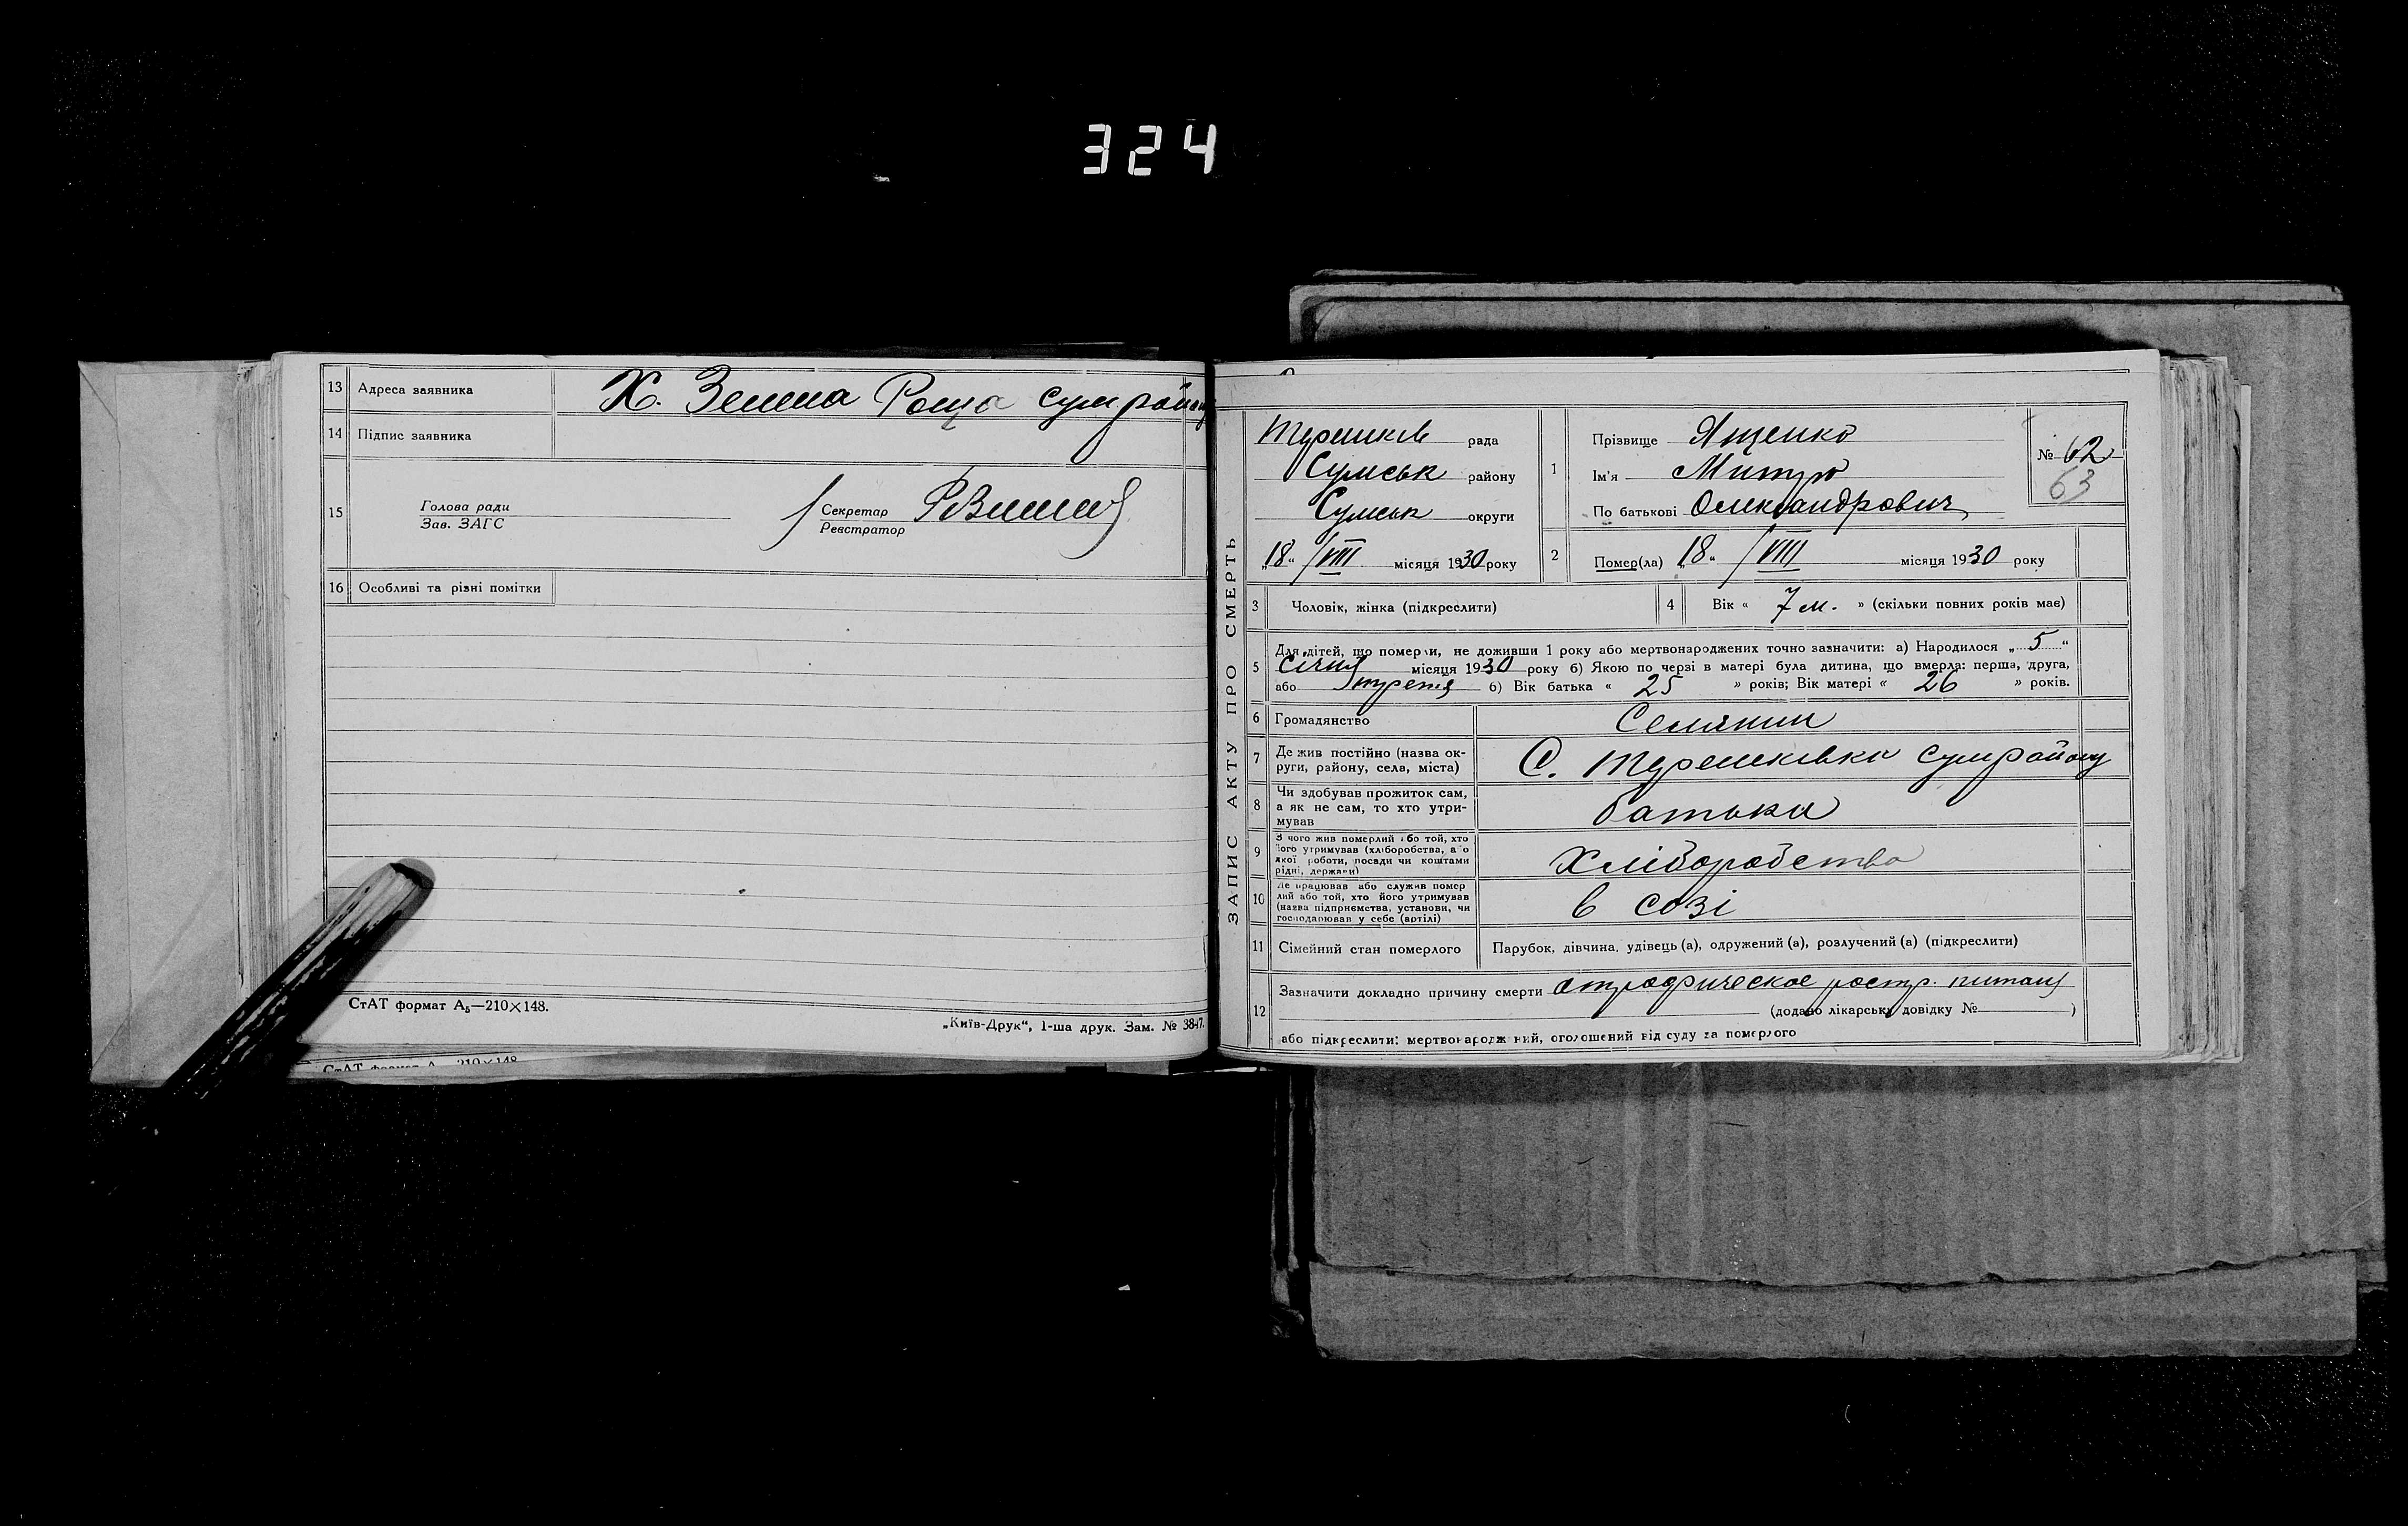 324
13 Адреса заявника Х. Зелена Роща Сумрайону
14 Підпис заявника
15 Голова ради
Зав. ЗАГС
Секретар
Реєстратор
16 Особливі та різні помітки
СтАТ формат А₅—210×148.
„Київ-Друк“, 1-ша друк. Зам. № 3847.
ЗАПИС АКТУ ПРО СМЕРТЬ
Терешків рада
Сумськ району
Сумськ округи
„18“ /VIII місяця 1930 року
1 Прізвище Ященко
Ім'я Митро
По батькові Олександрович
№ 62
63
2 Помер(ла) „18“ /VIII місяця 1930 року
3 Чоловік, жінка (підкреслити)
4 Вік « 7 м. » (скільки повних років має)
5 Для дітей, що померли, не доживши 1 року або мертвонароджених точно зазначити: а) Народилося „5“
Січня місяця 1930 року б) Якою по черзі в матері була дитина, що вмерла: перша, друга,
або третя б) Вік батька « 25 » років; Вік матері « 26 » років.
6 Громадянство Селянин
7 Де жив постійно (назва ок-
руги, району, села, міста) С. Терешківка Сумрайону
8 Чи здобував прожиток сам,
а як не сам, то хто утри-
мував батьки
9 З чого жив померлий або той, хто
його утримував (хліборобства, або
якої роботи, посади чи коштами
рідні, держави) Хліборобство
10 Де працював або служив помер
лий або той, хто його утримував
(назва підприємства, установи, чи
господарював у себе (артілі) в созі
11 Сімейний стан померлого Парубок, дівчина, удівець (а), одружений (а), розлучений (а) (підкреслити)
12 Зазначити докладно причину смерти атрофическое растр. питания
(додано лікарську довідку № )
або підкреслити: мертвонароджений, оголошений від суду за померлого